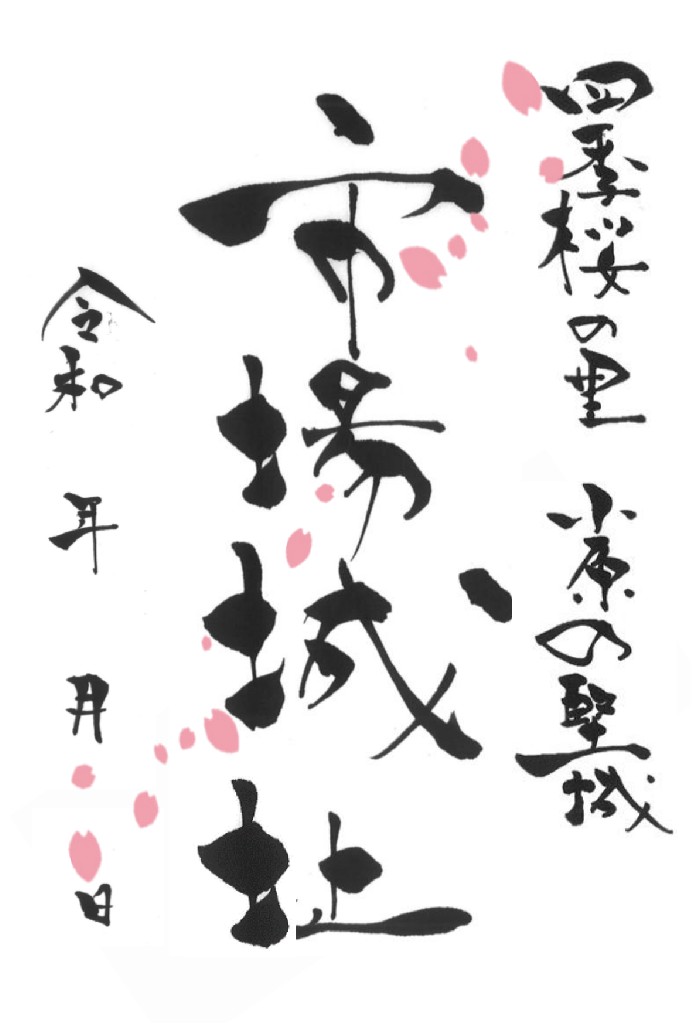 四季桜の里 小原の堅城
市場城址
令和 年 月 日